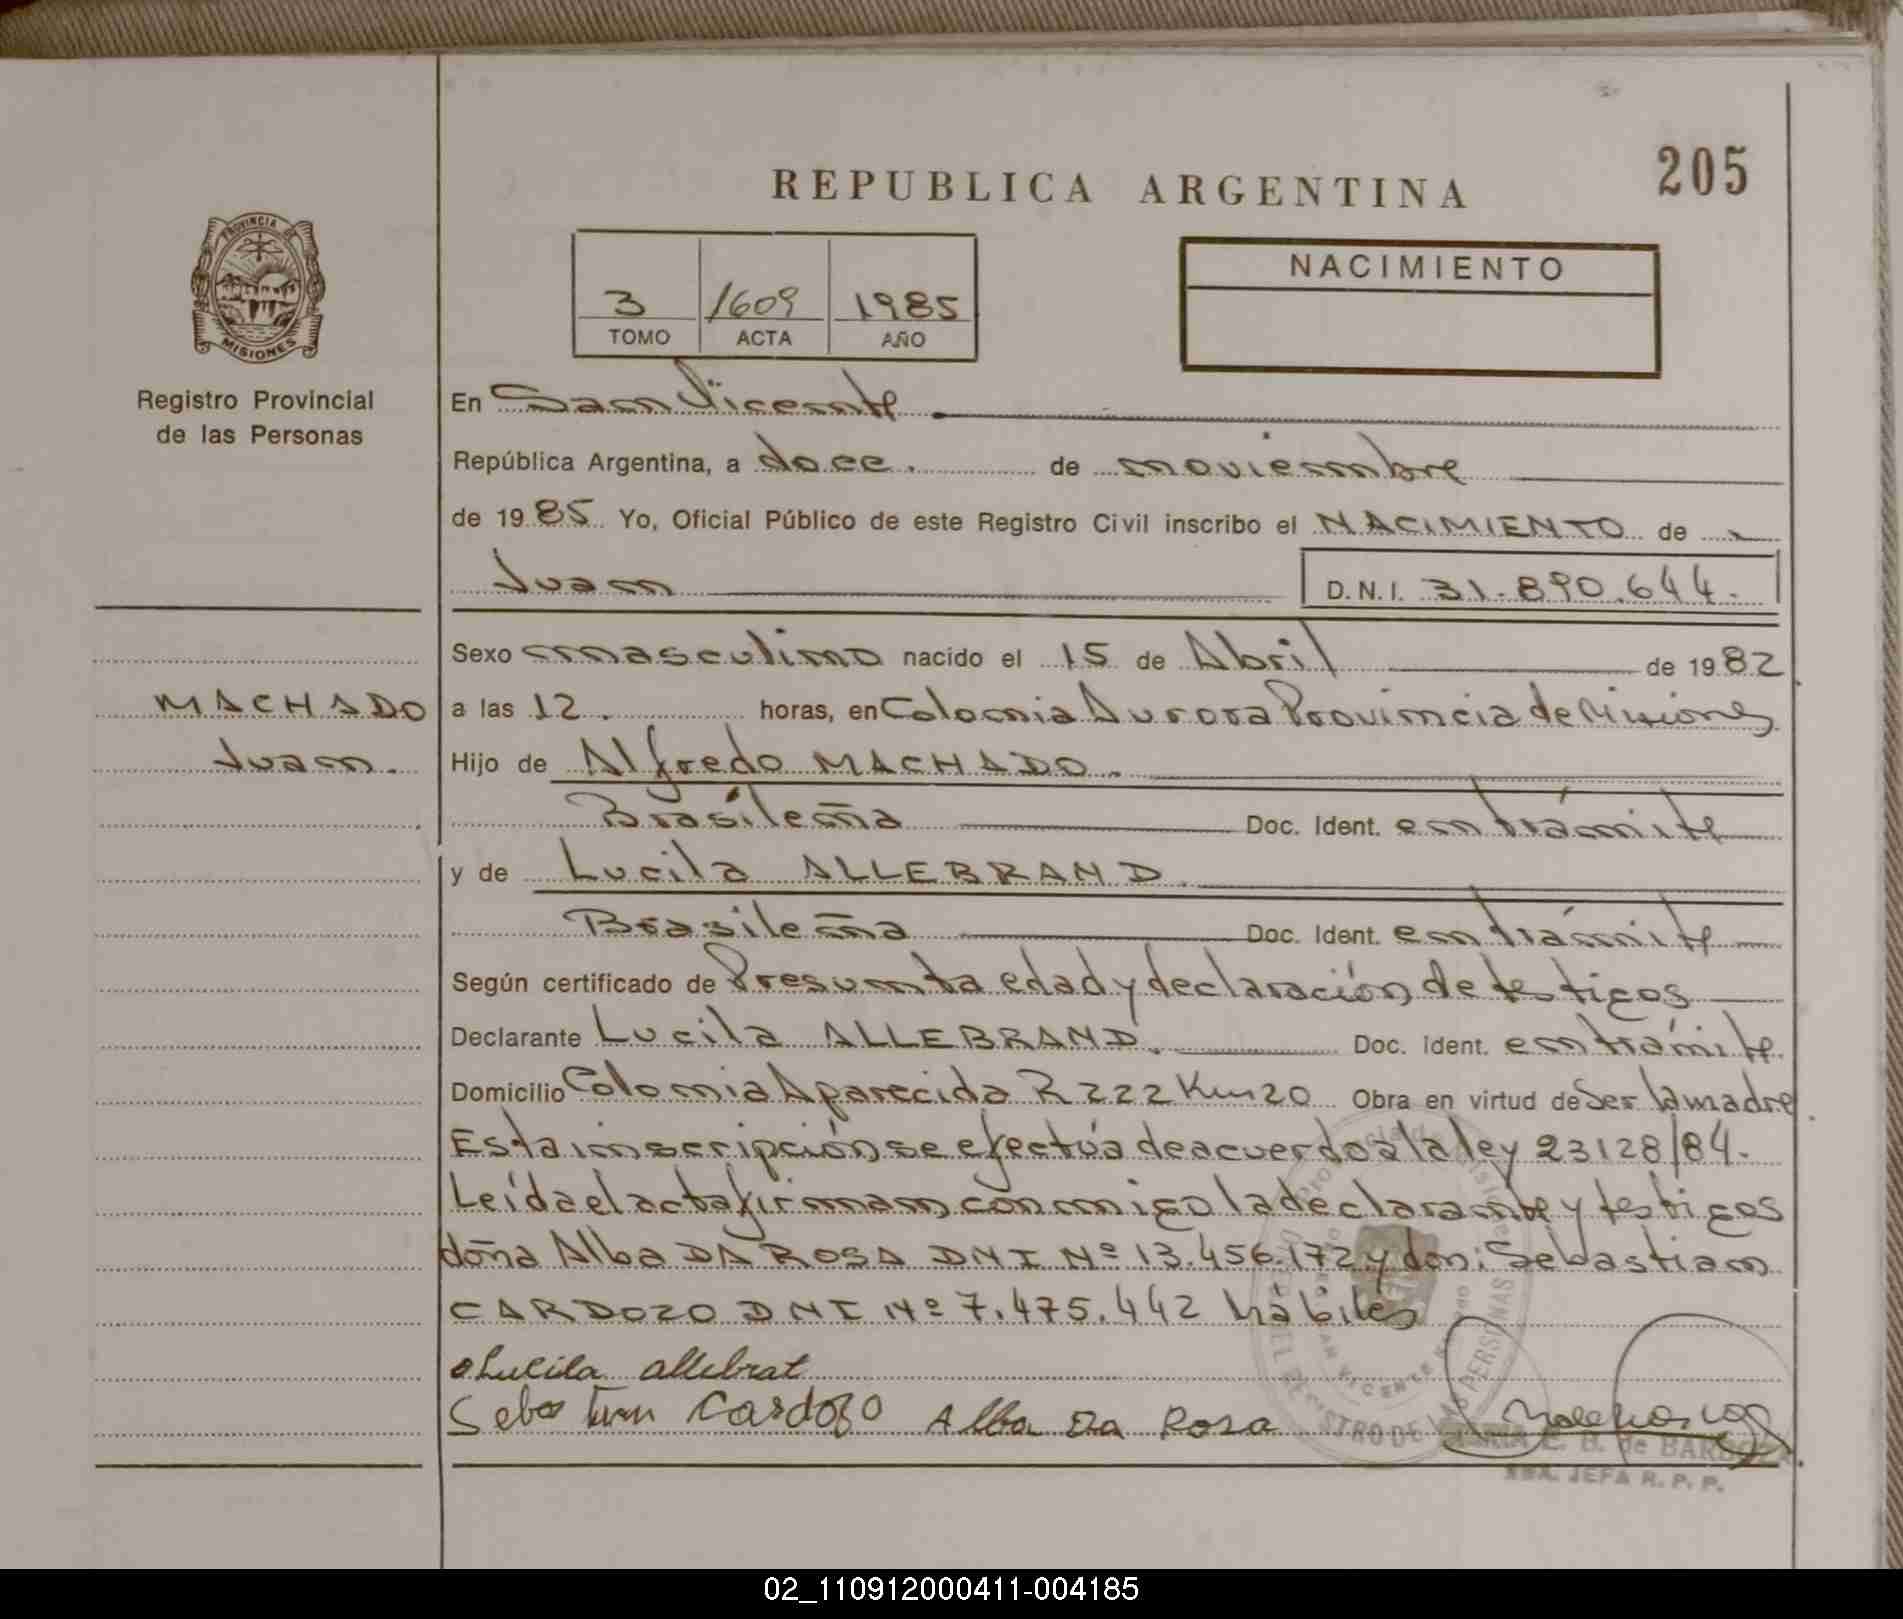 205
REPUBLICA ARGENTINA
PROVINCIA DE
MISIONES
Registro Provincial
de las Personas
3 1609 1985
TOMO ACTA AÑO
NACIMIENTO
En San Vicente
República Argentina, a doce. de noviembre
de 1985 Yo, Oficial Público de este Registro Civil inscribo el NACIMIENTO de
Juan D.N.I. 31.890.644.
Sexo masculino nacido el 15 de Abril de 1982
MACHADO
Juan.
a las 12. horas, en Colonia Aurora Provincia de Misiones
Hijo de Alfredo MACHADO.
Brasileña Doc. Ident. en trámite
y de Lucila ALLEBRAND.
Brasileña Doc. Ident. en trámite
Según certificado de Presunta edad y declaración de testigos
Declarante Lucila ALLEBRAND. Doc. Ident. en trámite
Domicilio Colonia Aparecida R 222 Km 20 Obra en virtud de Ser la madre
Esta inscripción se efectúa de acuerdo a la ley 23128/84.
Leída el acta firman conmigo la declarante y testigos
doña Alba DA ROSA DNI Nº 13.456.172 y don: Sebastian
CARDOZO DNI Nº 7.475.442 hábiles
Lucila allebrat
Sebastian Cardozo Alba Da Rosa
MARIA E. B. de BARBOZA
JEFA R. P. P.
02_110912000411-004185